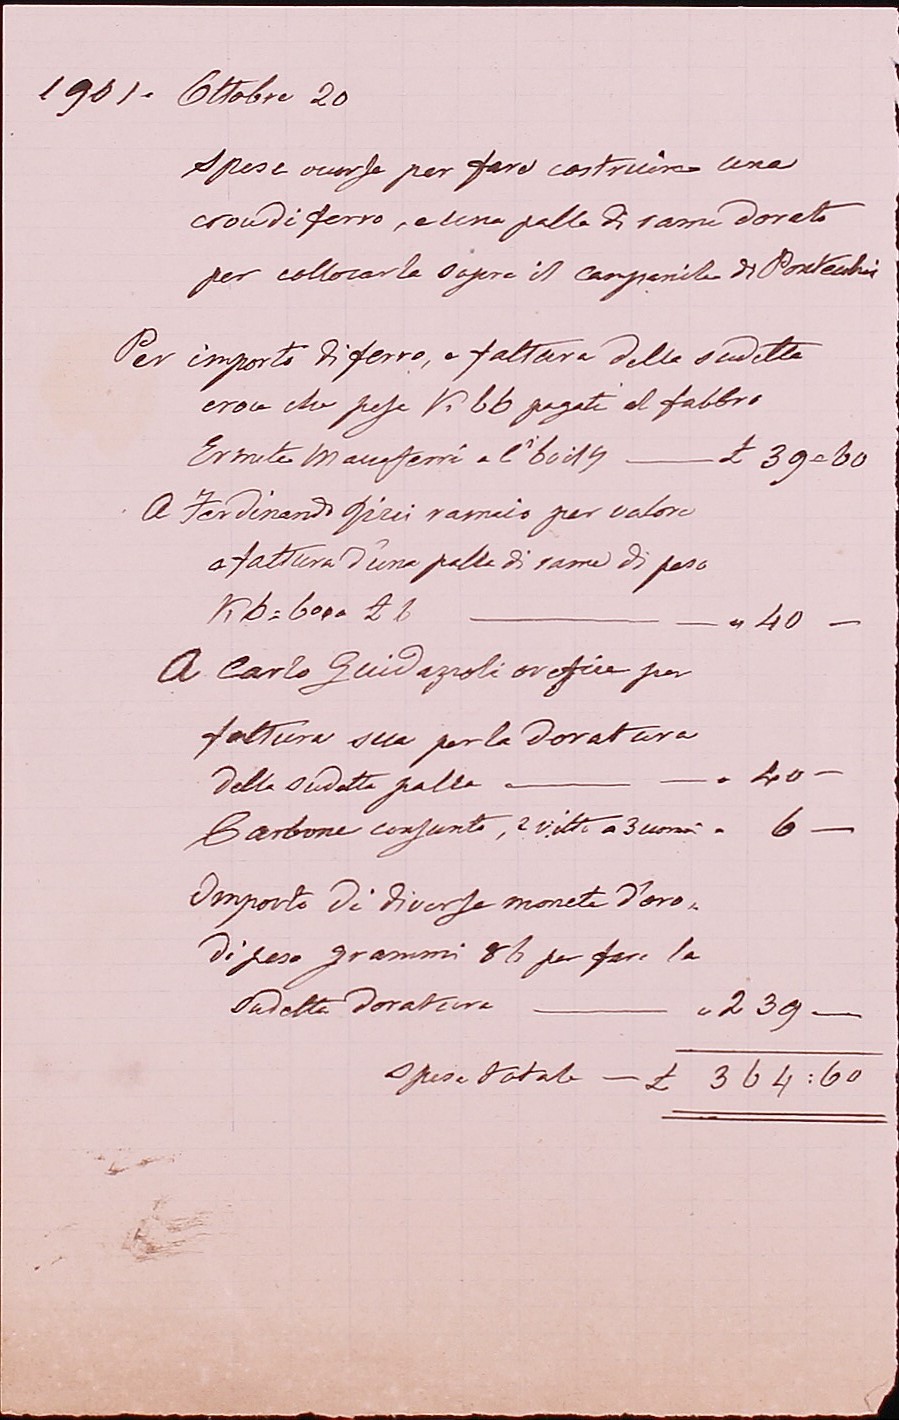 1901. Ottobre 20
Spese occorse per fare costruire una
croce di ferro, e una palla di rame dorato
per collocarla sopra il campanile di Pontecchio
Per importo di ferro, e fattura della sudetta
croce che pesa K 66 pagati al fabbro
Ermete Maccaferri a c.i 60 il K £ 39=60
A Ferdinando ramaio per valore
e fattura d'una palla di rame di peso
K 6=600 a £ 6 " 40 —
A Carlo Guidazzoli orefice per
fattura sua per la doratura
della sudetta palla " 40 —
Carbone consunto, e vitto a 3 uomini " 6 —
Importo di diverse monete d'oro,
di peso grammi 86 per fare la
sudetta doratura " 239 —
Spesa totale — £ 364:60